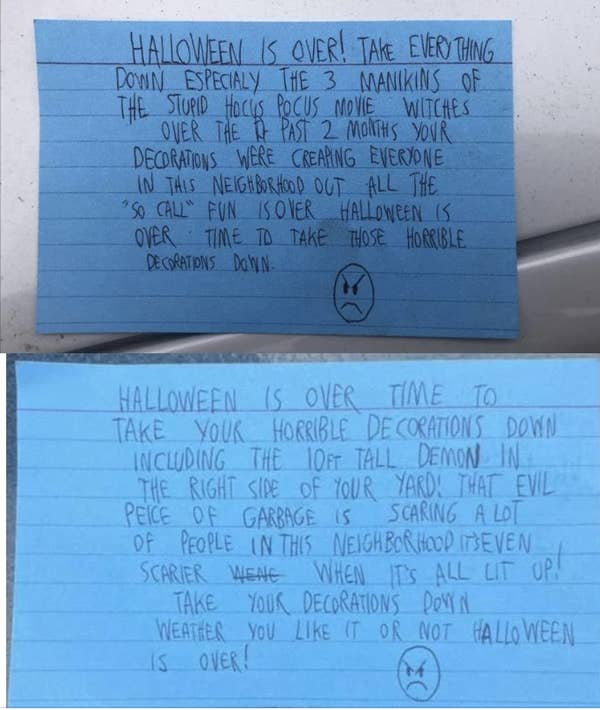 HALLOWEEN IS OVER! TAKE EVERYTHING
DOWN ESPECIALY THE 3 MANIKINS OF
THE STUPID HOCUS POCUS MOVIE WITCHES
OVER THE PAST 2 MONTHS YOUR
DECORATIONS WERE CREAPING EVERYONE
IN THIS NEIGHBORHOOD OUT ALL THE
"SO CALL" FUN IS OVER HALLOWEEN IS
OVER TIME TO TAKE THOSE HORRIBLE
DECORATIONS DOWN.
HALLOWEEN IS OVER TIME TO
TAKE YOUR HORRIBLE DECORATIONS DOWN
INCLUDING THE 10FT TALL DEMON IN
THE RIGHT SIDE OF YOUR YARD! THAT EVIL
PEICE OF GARBAGE IS SCARING A LOT
OF PEOPLE IN THIS NEIGHBORHOOD IT'S EVEN
SCARIER WHEN IT'S ALL LIT UP!
TAKE YOUR DECORATIONS DOWN
WEATHER YOU LIKE IT OR NOT HALLOWEEN
IS OVER!